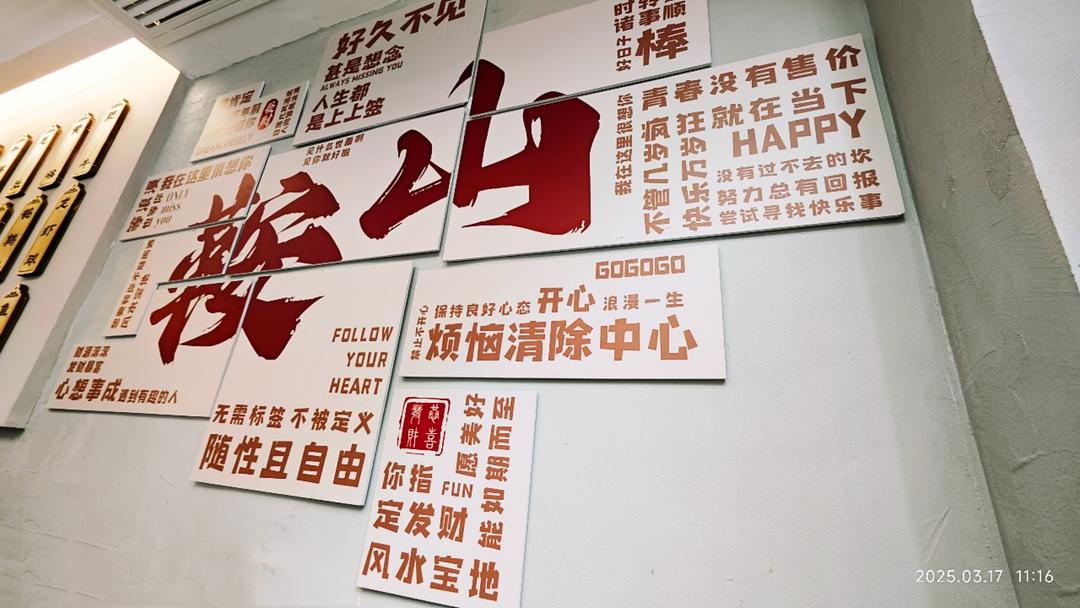 好久不见
甚是想念
ALWAYS MISSING YOU
人生都
是上上签
好日子
时诸
事顺
棒
见什么世面啊
见你就好啦
鞍山
我在这里很想你
ONLY
MISS
YOU
我在这里很想你
青春没有售价
疯狂就在当下
HAPPY
不管几岁
快乐万岁
没有过不去的坎
努力总有回报
尝试寻找快乐事
财源滚滚
发财暴富
心想事成
遇到有趣的人
FOLLOW
YOUR
HEART
无需标签 不被定义
随性且自由
GOGOGO
禁止不开心
保持良好心态 开心 浪漫一生
烦恼清除中心
恭喜
發財
愿美好
能如期而至
你指
FUN
定发财
风水宝地
龙虾球
2025.03.17 11:16